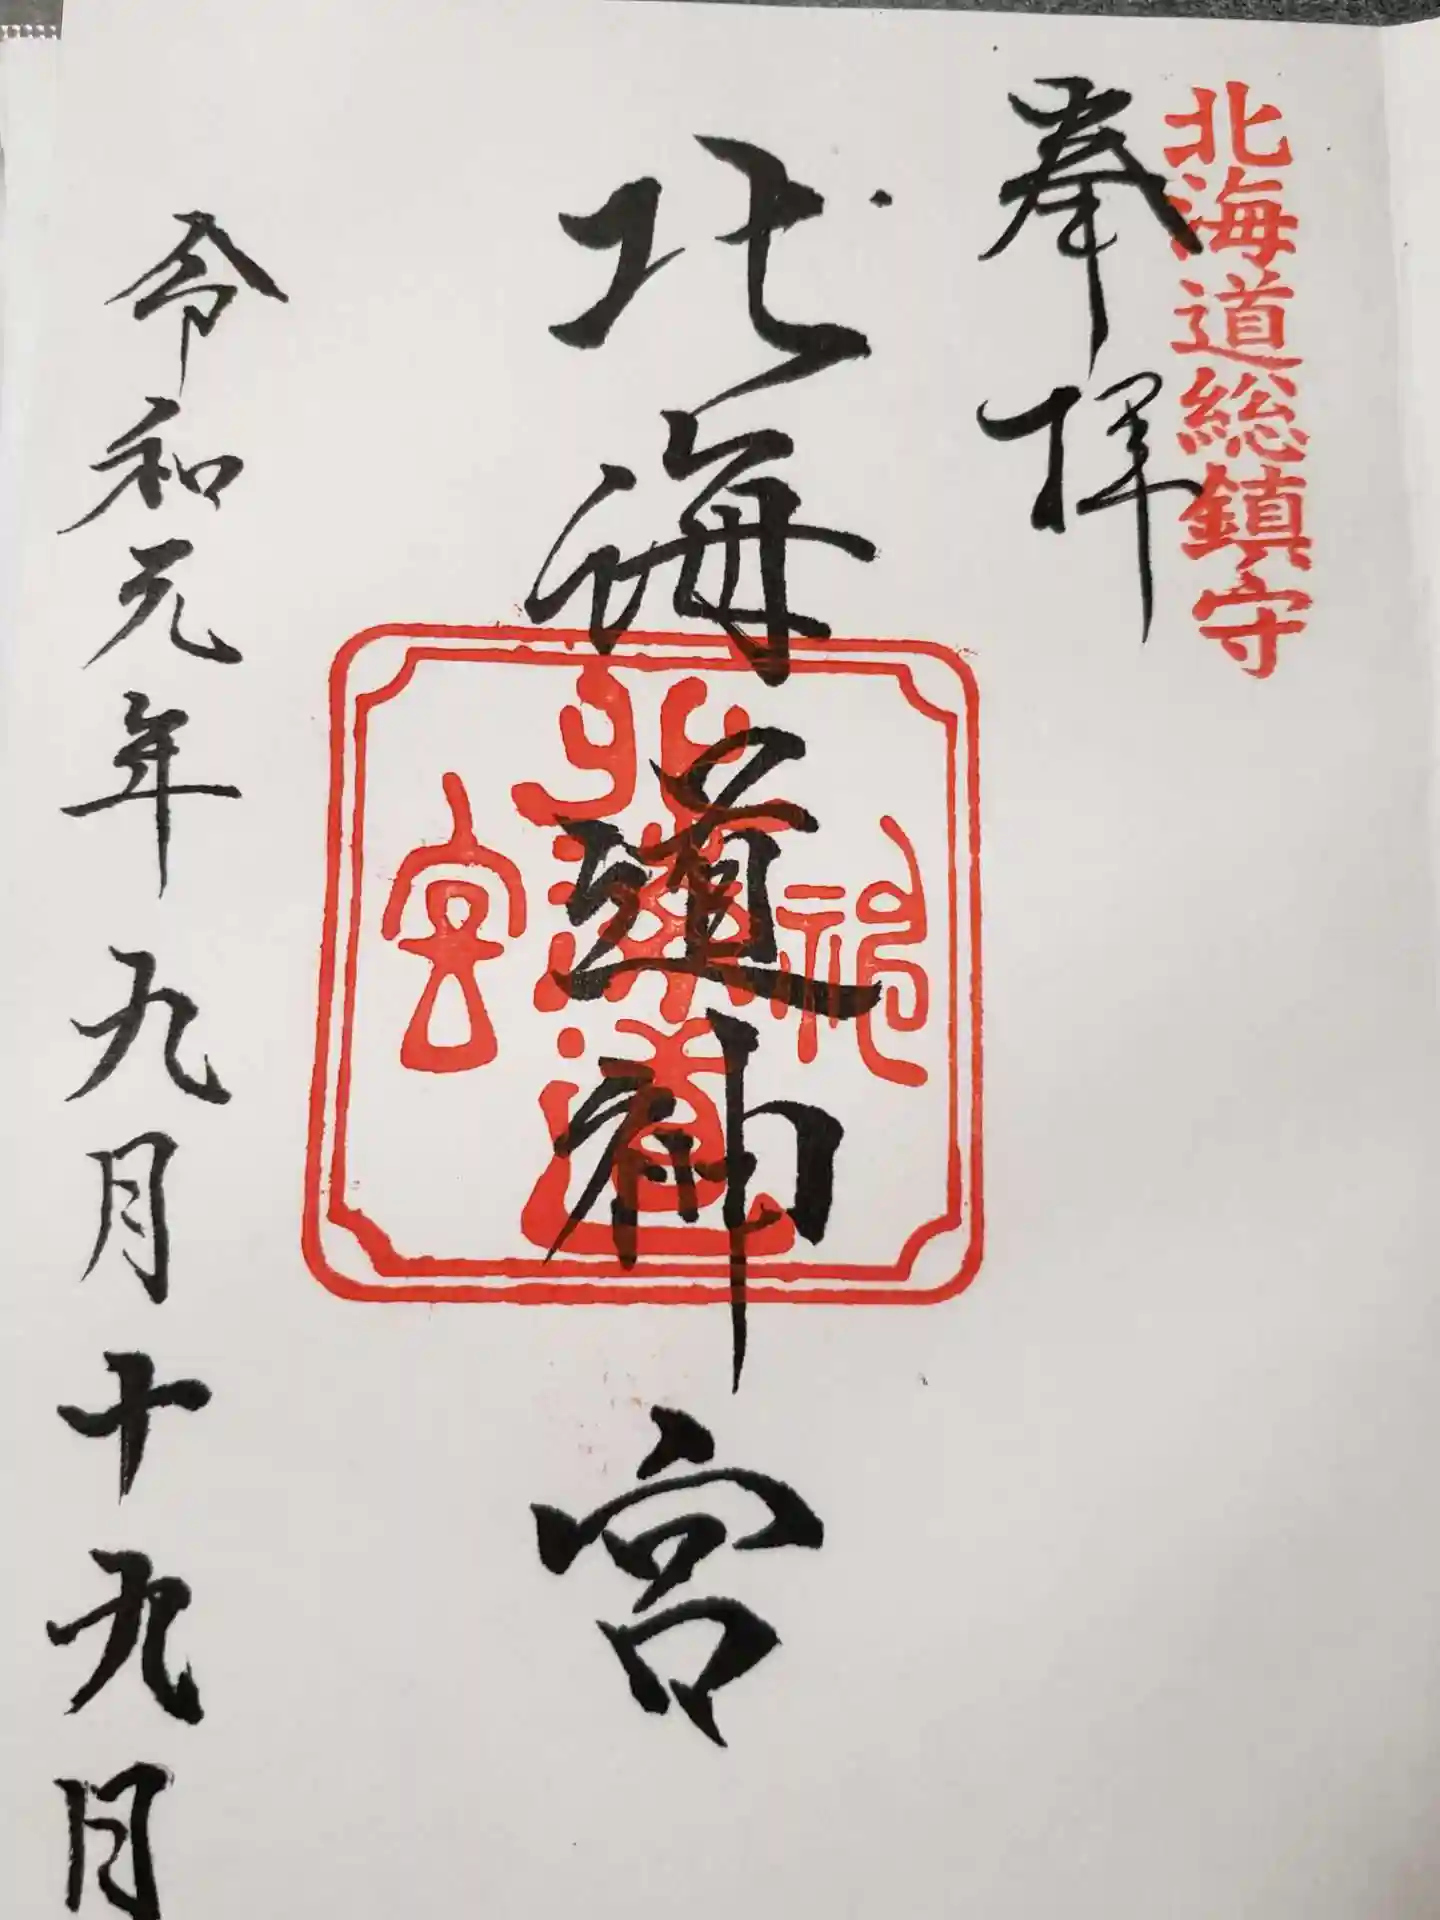 北海道総鎮守
奉拝
北海道神宮
北海道
神
宮
令和元年九月十九日